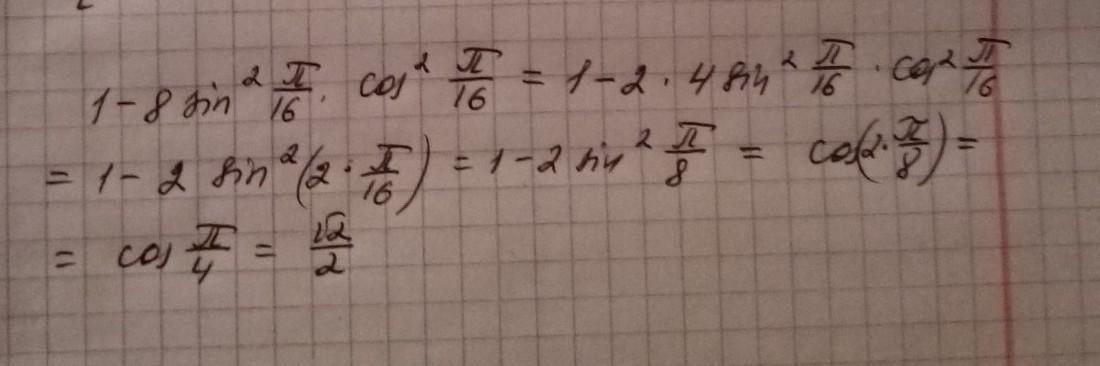 1 - 8 sin² π/16 · cos² π/16 = 1 - 2 · 4 sin² π/16 · cos² π/16
= 1 - 2 sin² (2 · π/16) = 1 - 2 sin² π/8 = cos(2 · π/8) =
= cos π/4 = √2/2